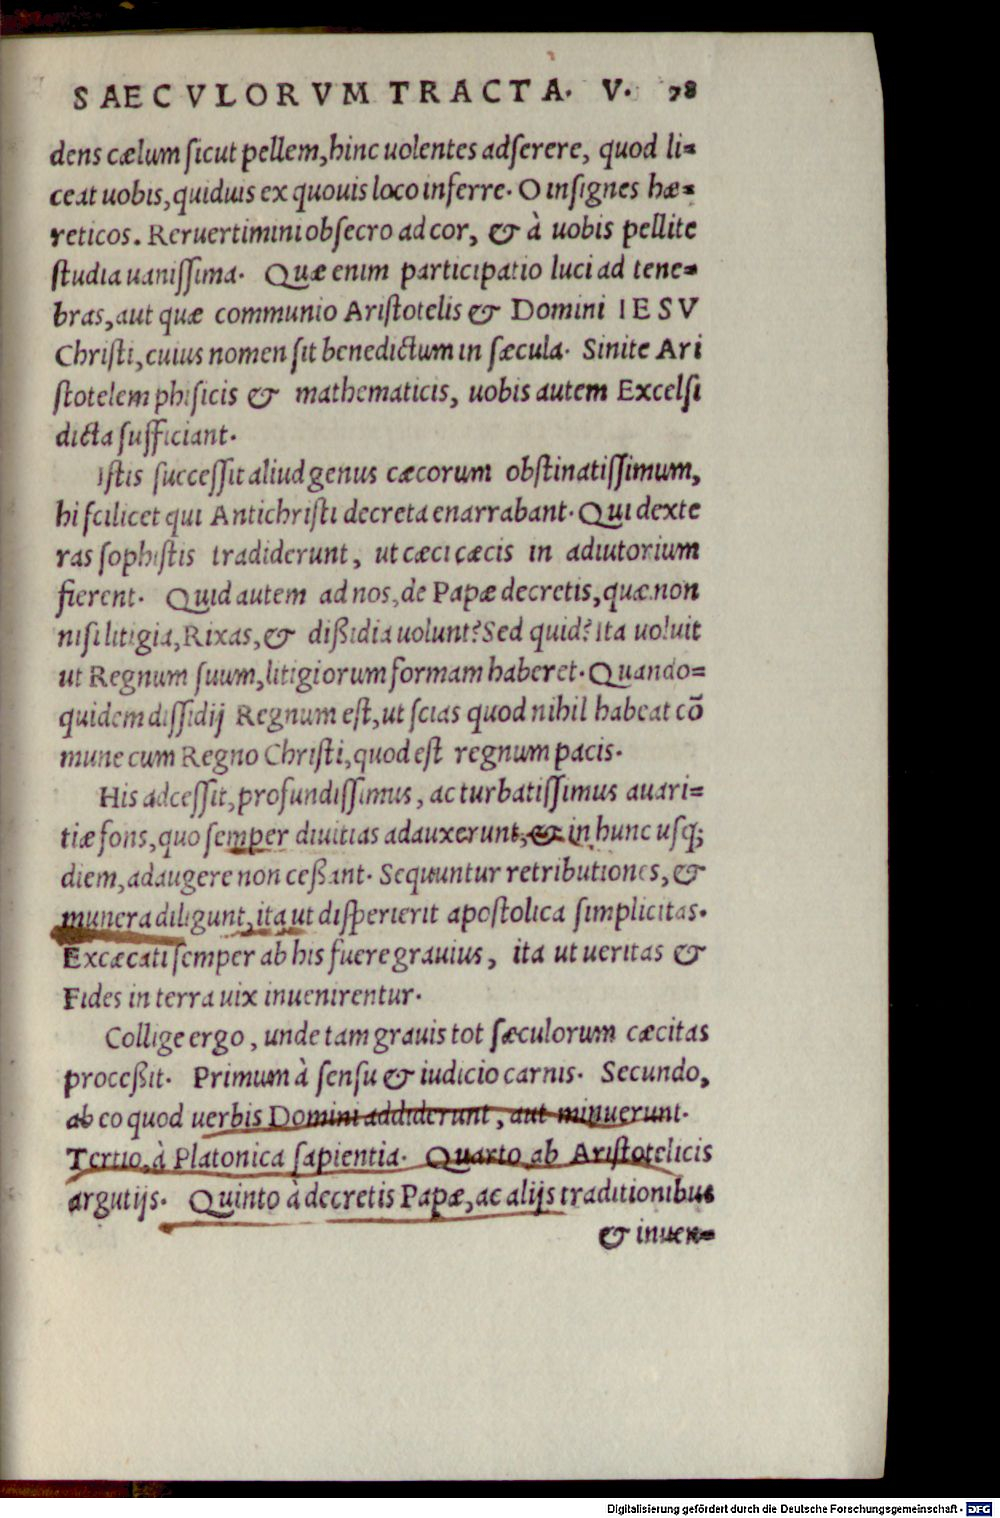 SAECVLORVM TRACTA. V. 78
dens cælum sicut pellem, hinc uolentes adserere, quod li=
ceat uobis, quiduis ex quouis loco inferre. O insignes hæ=
reticos. Reruertimini obsecro ad cor, & à uobis pellite
studia uanissima. Quæ enim participatio luci ad tene=
bras, aut quæ communio Aristotelis & Domini IESV
Christi, cuius nomen sit benedictum in sæcula. Sinite Ari
stotelem phisicis & mathematicis, uobis autem Excelsi
dicta sufficiant.
Istis successit aliud genus cæcorum obstinatissimum,
hi scilicet qui Antichristi decreta enarrabant. Qui dexte
ras sophistis tradiderunt, ut cæci cæcis in adiutorium
fierent. Quid autem ad nos, de Papæ decretis, quæ non
nisi litigia, Rixas, & dißidia uolunt? Sed quid? ita uoluit
ut Regnum suum, litigiorum formam haberet. Quando=
quidem dissidij Regnum est, ut scias quod nihil habeat cō
mune cum Regno Christi, quod est regnum pacis.
His adcessit, profundissimus, ac turbatissimus auari=
tiæ fons, quo semper diuitias adauxerunt, & in hunc usq;
diem, adaugere non ceßant. Sequuntur retributiones, &
munera diligunt, ita ut disperierit apostolica simplicitas.
Excæcati semper ab his fuere grauius, ita ut ueritas &
Fides in terra uix inuenirentur.
Collige ergo, unde tam grauis tot sæculorum cæcitas
proceßit. Primum à sensu & iudicio carnis. Secundo,
ab eo quod uerbis Domini addiderunt, aut minuerunt.
Tertio, à Platonica sapientia. Quarto ab Aristotelicis
argutijs. Quinto à decretis Papæ, ac alijs traditionibus
& inuen=
Digitalisierung gefördert durch die Deutsche Forschungsgemeinschaft - DFG